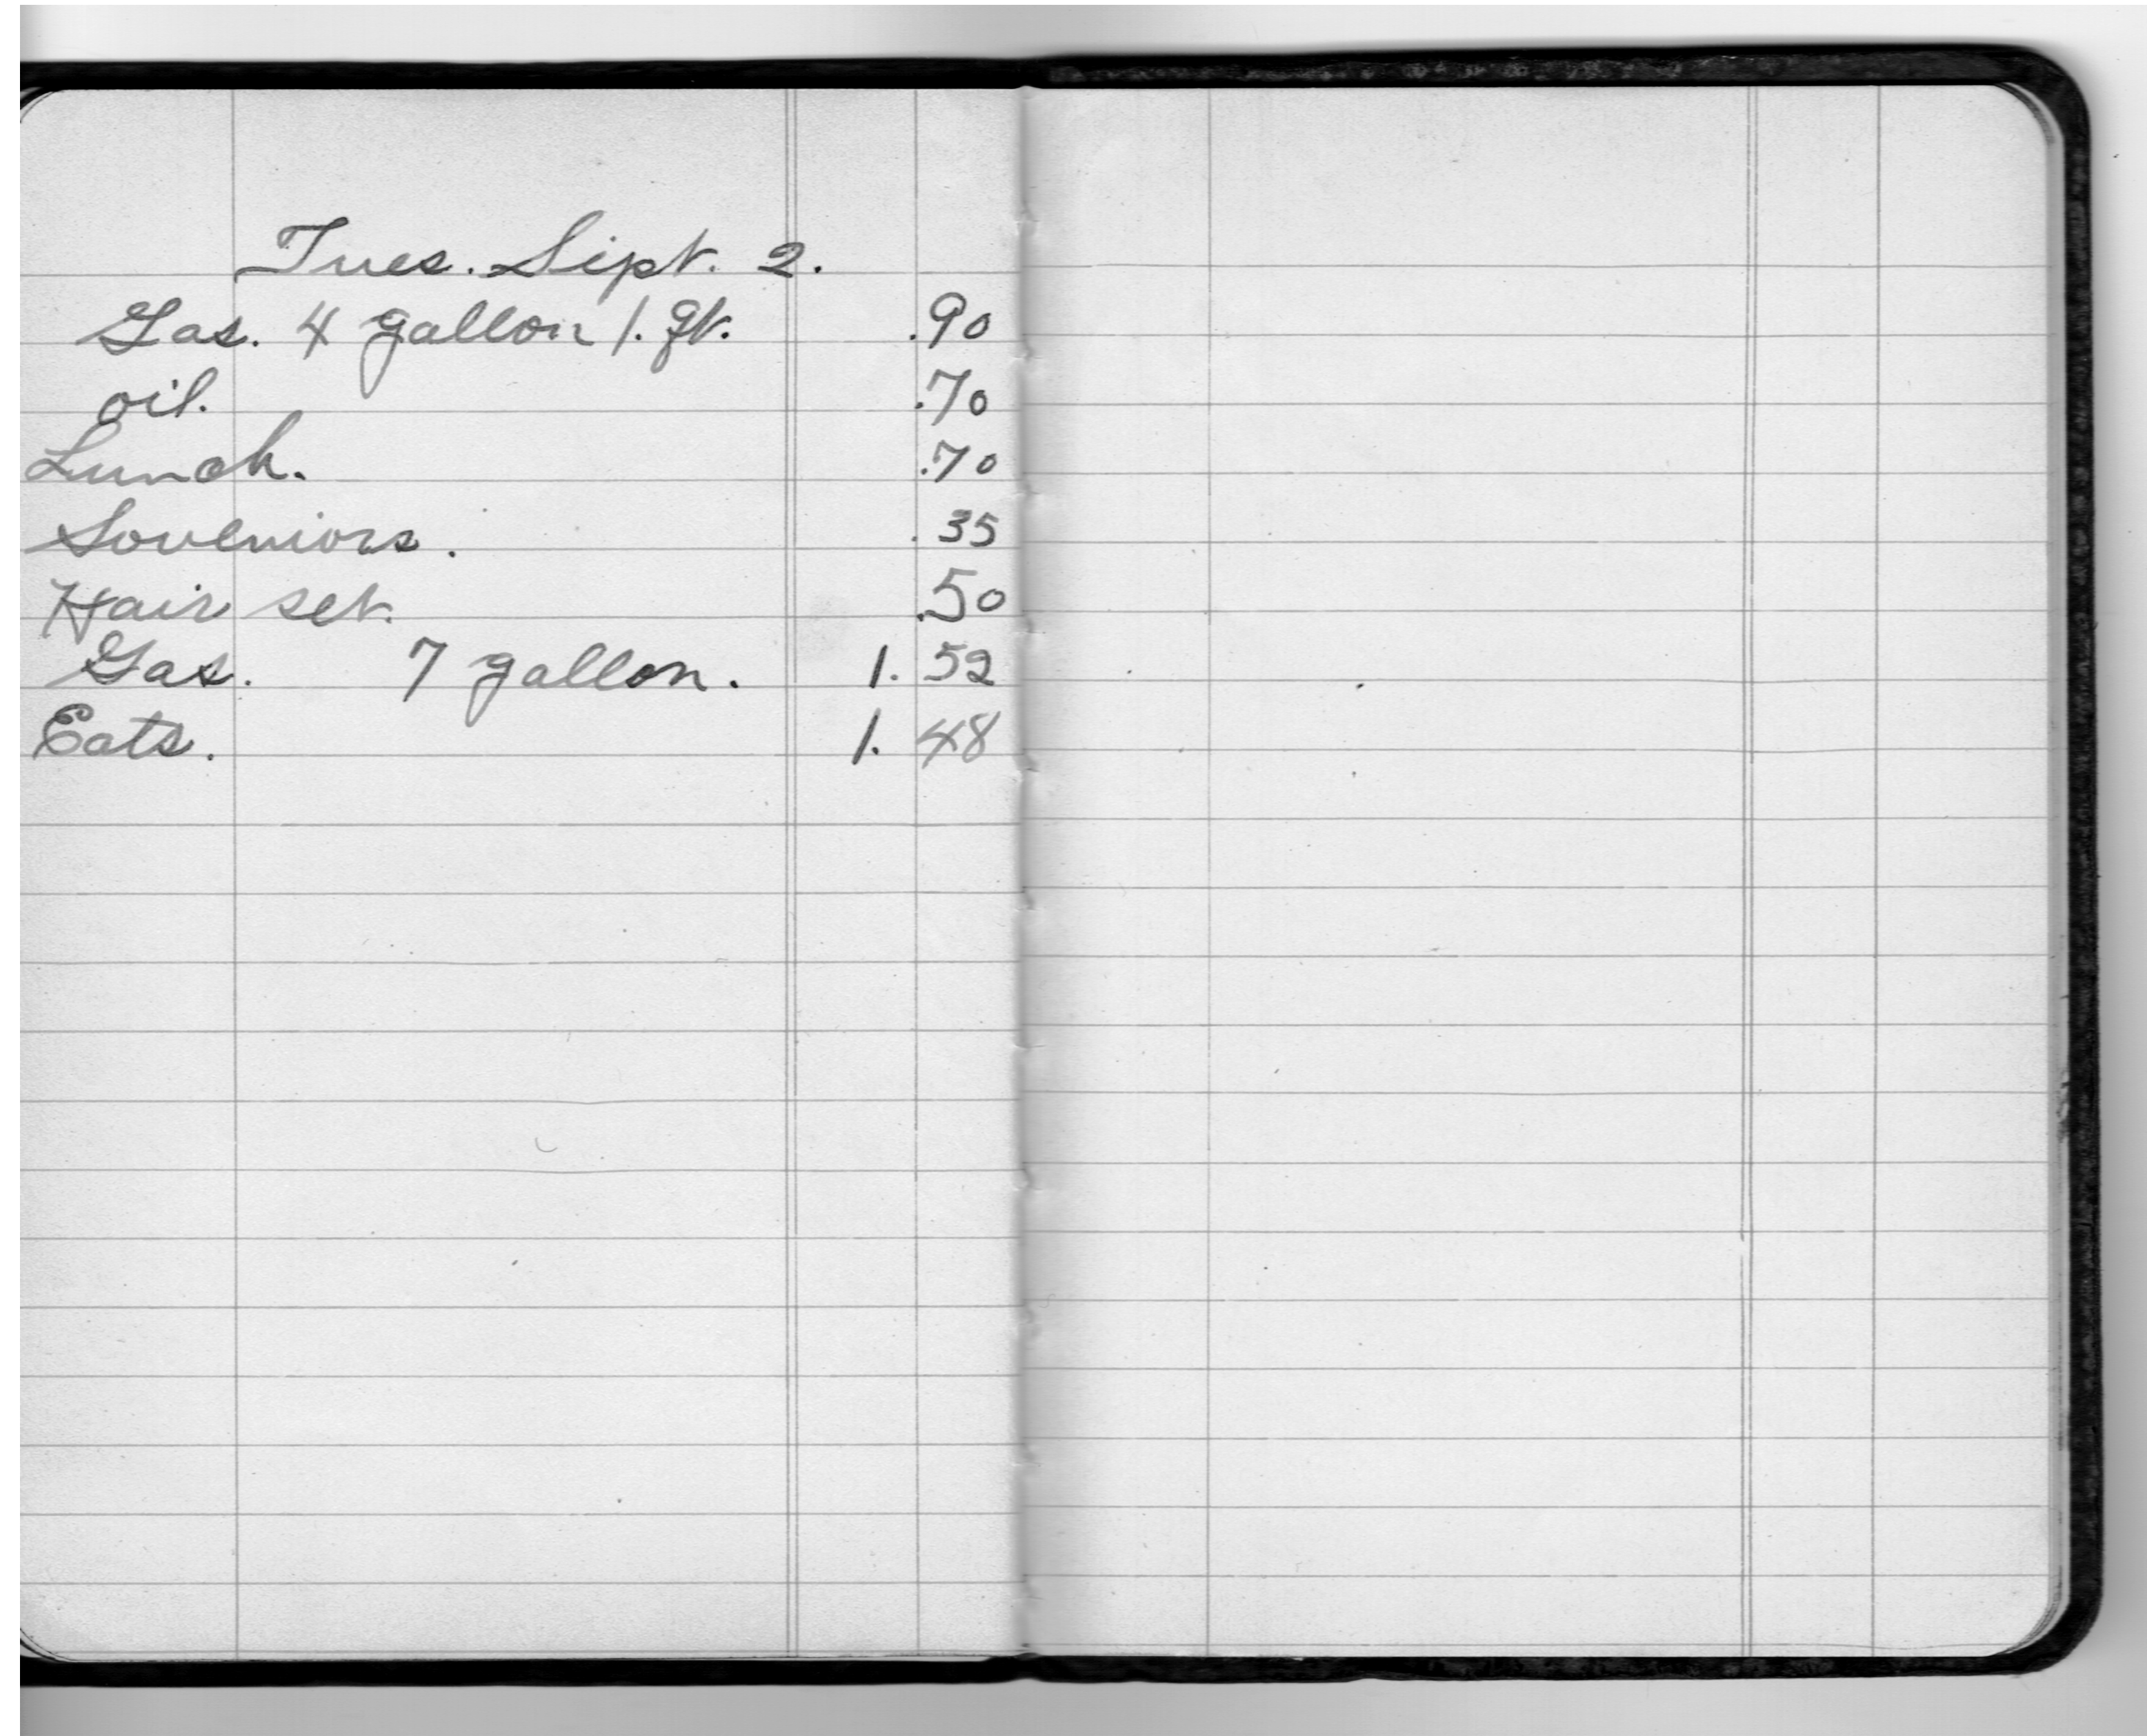 Tues. Sept. 2.
Gas. 4 gallon 1. qt. .90
oil. .70
Lunch. .70
Souveniors. .35
Hair set. .50
Gas. 7 gallon. 1.52
Eats. 1.48